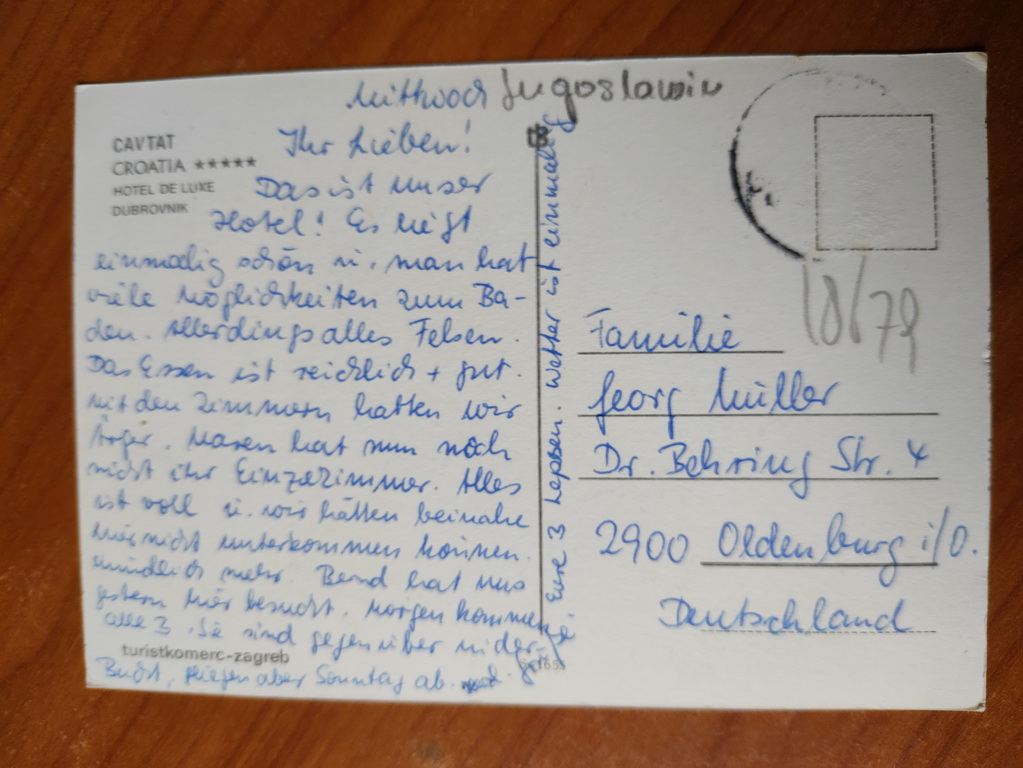 Mittwoch Jugoslawien
CAVTAT
CROATIA *****
HOTEL DE LUXE
DUBROVNIK
Ihr Lieben!
Das ist unser
Hotel! Es liegt
einmalig schön u. man hat
viele Möglichkeiten zum Ba-
den. Allerdings alles Felsen.
Das Essen ist reichlich + gut.
Mit den Zimmern hatten wir
Ärger. Maren hat nun noch
nicht ihr Einzelzimmer. Alles
ist voll u. wir hätten beinahe
hier nicht unterkommen können.
Mündlich mehr. Bernd hat uns
gestern hier besucht. Morgen kommen
alle 3. Sie sind gegenüber in der
Bucht, fliegen aber Sonntag ab.
turistkomerc-zagreb
Eure 3 Wetter ist einmalig
10/79
Familie
Georg Müller
Dr. Behring Str. 4
2900 Oldenburg i/O.
Deutschland